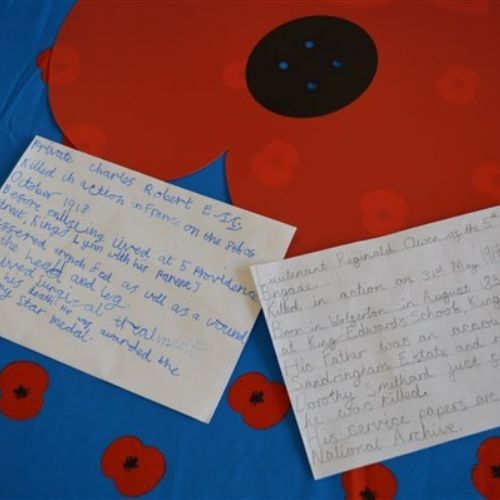 Private Charles Robert ESSS
Killed in action in France on the 8th of
October 1918.
Before enlisting lived at 5 Providence
Street, Kings Lynn with his Parents
suffered as well as a wound
the head and leg.
surgical treatment
his death. He was awarded the
Star medal.
Lieutenant Reginald Owen of the 5
Brigade.
Killed in action on 31st May 1917
Born in Wolferton in August 18
at King Edwards School, King
His Father was an accou
Sandringham Estate and
Dorothy Smithard just
he was killed.
His service papers are
National Archive.